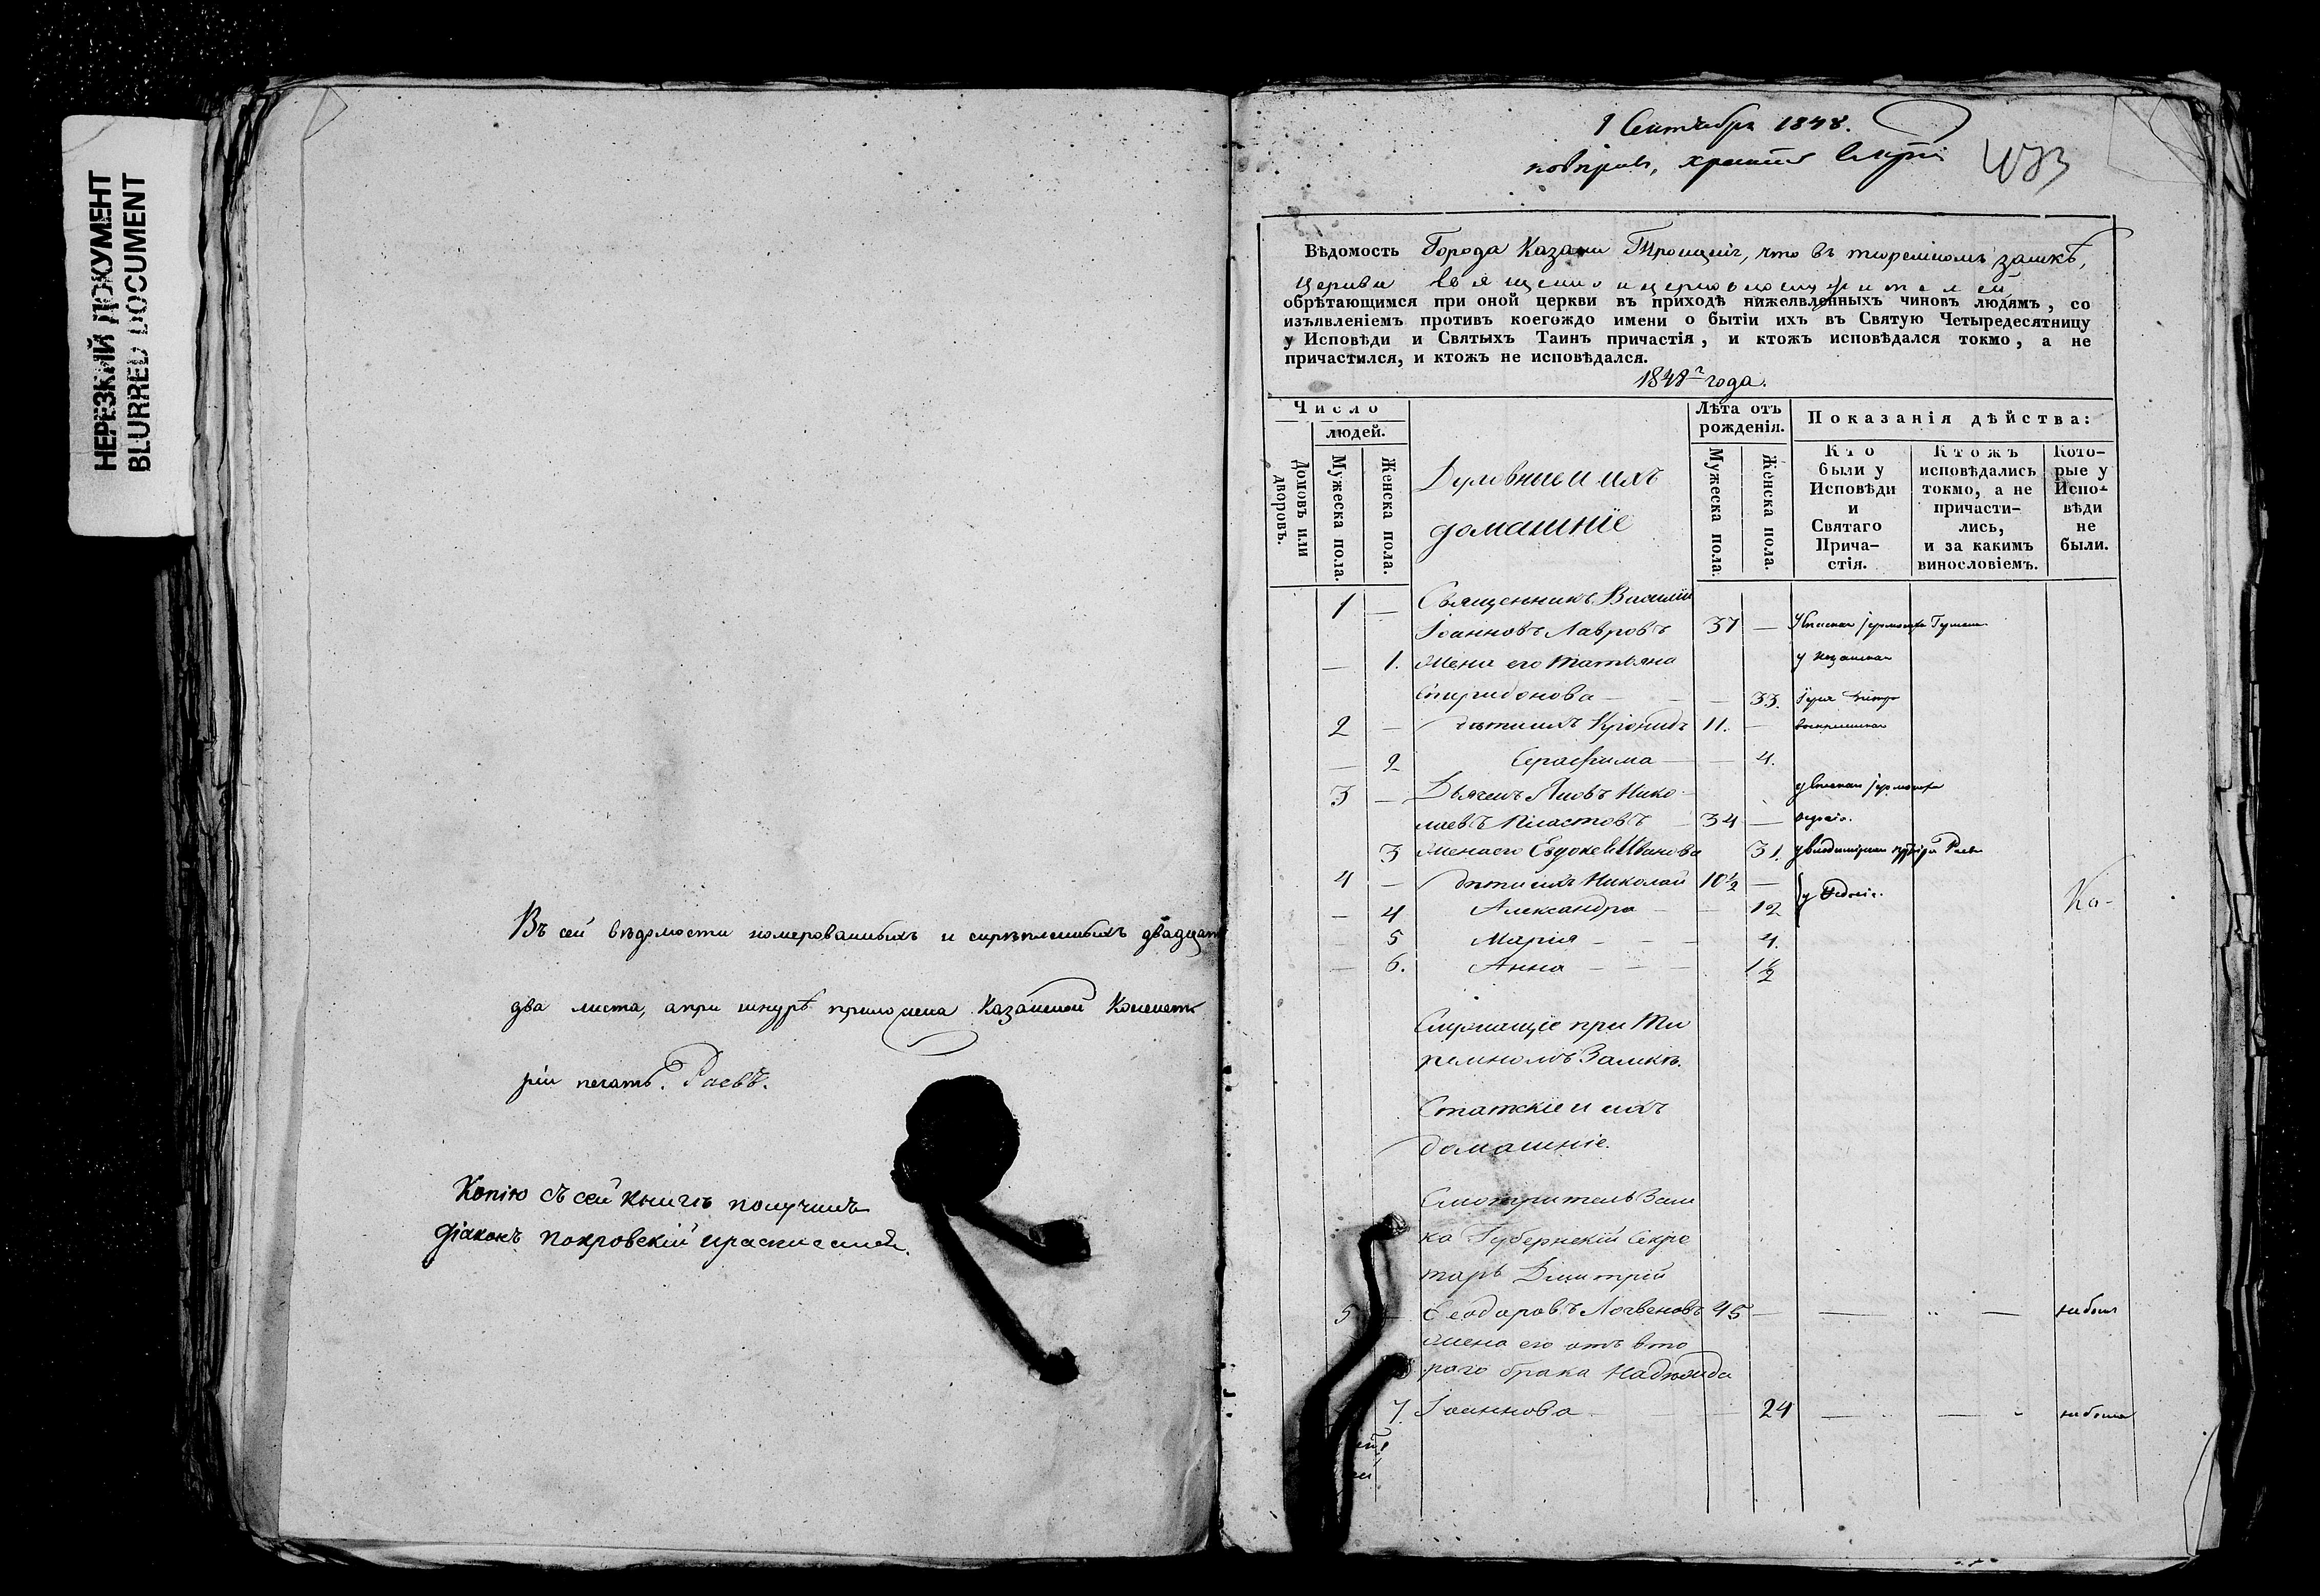 НЕРЕЗКИЙ ДОКУМЕНТ
BLURRED DOCUMENT
Въ сей вѣдомости номерованныхъ и скрѣпленныхъ двадцать
два листа, а при шнурѣ приложена Казанской Консисто
ріи печать. Раевъ.
Копію съ сей книги получилъ
Діаконъ Покровскій
1 Сентября 1848.
473
Вѣдомость Города Казани Троицкой, что въ тюремномъ замкѣ,
Церкви
обрѣтающимся при оной церкви въ приходѣ нижеявленныхъ чиновъ людямъ, со
изъявленіемъ противъ коегождо имени о бытіи ихъ въ Святую Четыредесятницу
у Исповѣди и Святыхъ Таинъ причастія, и ктожъ исповѣдался токмо, а не
причастился, и ктожъ не исповѣдался.
1848 года.
Число
людей.
Домовъ или дворовъ.
Мужеска пола.
Женска пола.
Духовные и ихъ
домашніе
Лѣта отъ
рожденія.
Мужеска пола.
Женска пола.
Показанія дѣйства:
Кто
были у
Исповѣди
и
Святаго
Прича-
стія.
Ктожъ
исповѣдались
токмо, а не
причасти-
лись,
и за какимъ
винословіемъ.
Кото-
рые у
Испо-
вѣди
не
были.
1 — Священникъ Василій
Іоанновъ Лавровъ 37 —
— 1. Жена его Татьяна
Спиридонова — — 33.
2 — дѣти ихъ Кронидъ 11. —
— 2 Серафима — — 4.
3 — Дьячекъ Яковъ Нико
лаевъ Пластовъ — 34 —
3 Жена его Евдокія Иванова 31.
4 — дѣти ихъ Николай 10½ —
— 4 Александра — — 12
5 Марія — — — 4.
— 6. Анна — — — 1½
Служащіе при Тю
ремномъ Замкѣ.
Статскіе и ихъ
домашніе.
Смотритель Зам
ка Губернскій Секре
тарь Димитрій
5 — Ѳеодоровъ Логвеновъ 45 — — — не былъ
Жена его отъ вто
раго брака Надежда
7. Іоаннова — 24 — — не была